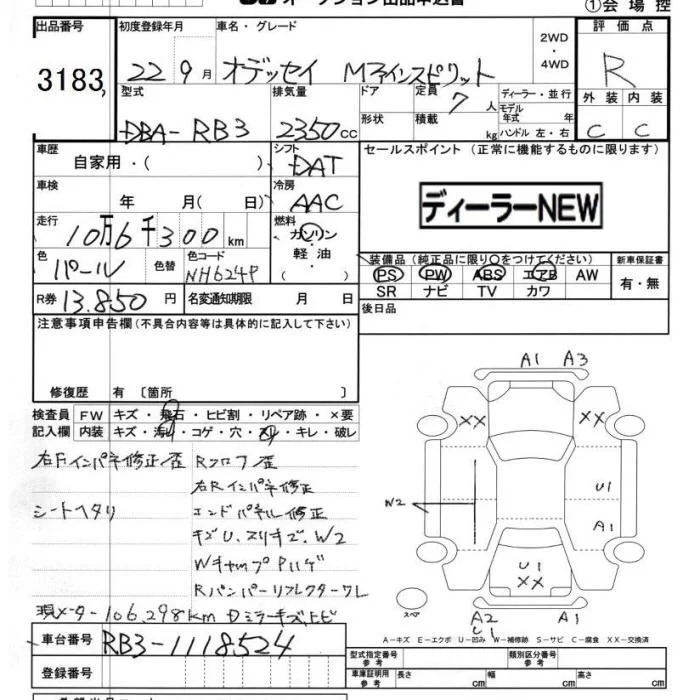 オークション出品申込書
①会場控
出品番号 初度登録年月 車名・グレード 評価点
3183 22 9月 オデッセイ Mファインスピリット 2WD・4WD R
型式 排気量 ドア 定員 7人 ディーラー・並行 外装 内装
DBA-RB3 2350cc 形状 積載 kg モデル年式 年 ハンドル 左・右 C C
車歴 シフト セールスポイント (正常に機能するものに限ります)
自家用・( ) DAT
車検 冷房 ディーラーNEW
年 月(日) AAC
走行 燃料
10万6千300km ガソリン・軽油・( )
色 色替 色コード 装備品 (純正品に限り○をつけてください) 新車保証書
パール NH624P PS PW ABS エアB AW 有・無
R券 13.850円 名変通知期限 月 日 SR ナビ TV カワ
後日品
注意事項申告欄(不具合内容等は具体的に記入して下さい)
修復歴 有〔箇所 〕
A1 A3
検査員 FW キズ・飛石・ヒビ割・リペア跡・×要
記入欄 内装 キズ・汚れ・コゲ・穴・スレ・キレ・破レ
XX XX
右Fインパネ修正歪 Rクロフ歪
右Rインパネ修正
シートヘタリ エンドパネル修正
キズU、スリキズ、W2
WキャップPハゲ
Rバンパーリフレクターワレ
現メーター106,298km Dミラーキズ、ヒビ
U1
W2
A1
U1
XX
スペア
A2 A1
U1
車台番号 RB3-1118524
A-キズ E-エクボ U-凹み W-補修跡 S-サビ C-腐食 XX-交換済
登録番号 型式指定番号 参考 類別区分番号 参考
車庫証明用 参考 長さ cm 幅 cm 高さ cm